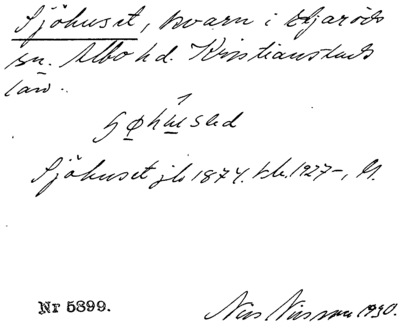 Sjöhuset, kvarn i Eljaröds
sn. Albo hd. Kristianstads
län.
Sjöhuset jb 1874. 1927-,
Nr 5899.
Nils Nilsson 1930.